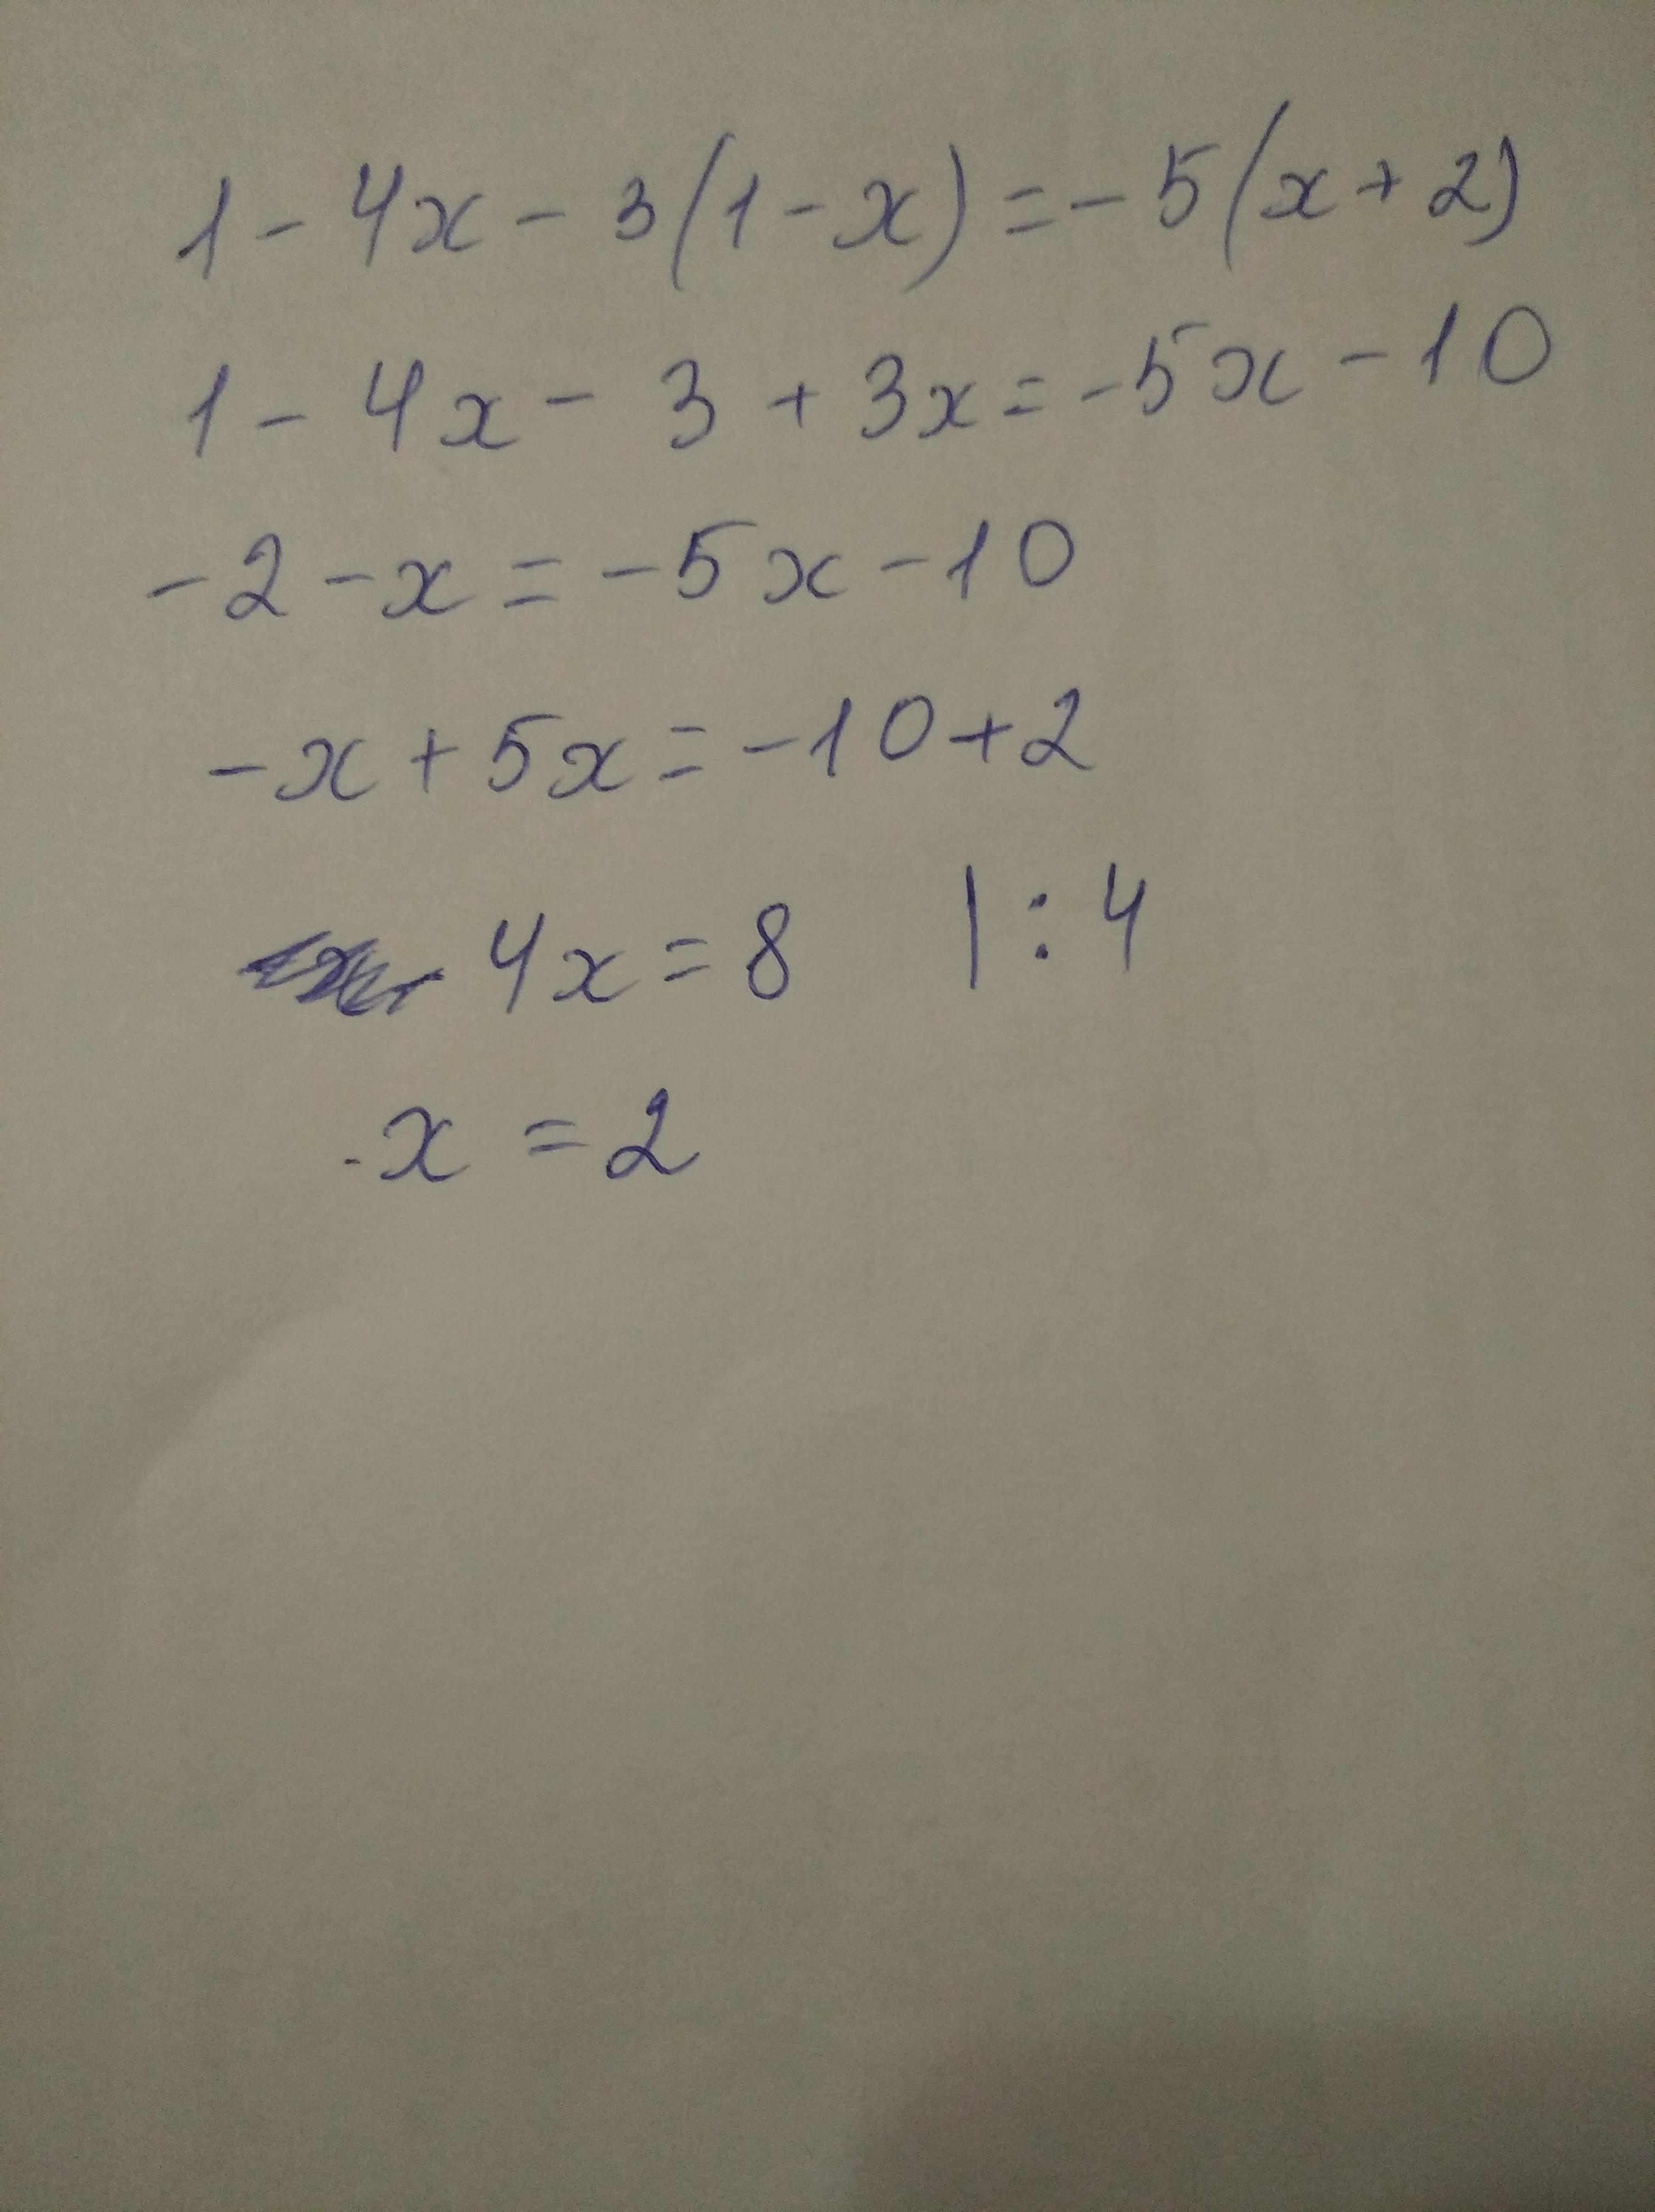 1 - 4x - 3(1 - x) = - 5(x + 2)
1 - 4x - 3 + 3x = -5x - 10
-2 - x = -5x - 10
-x + 5x = -10 + 2
4x = 8 | : 4
x = 2